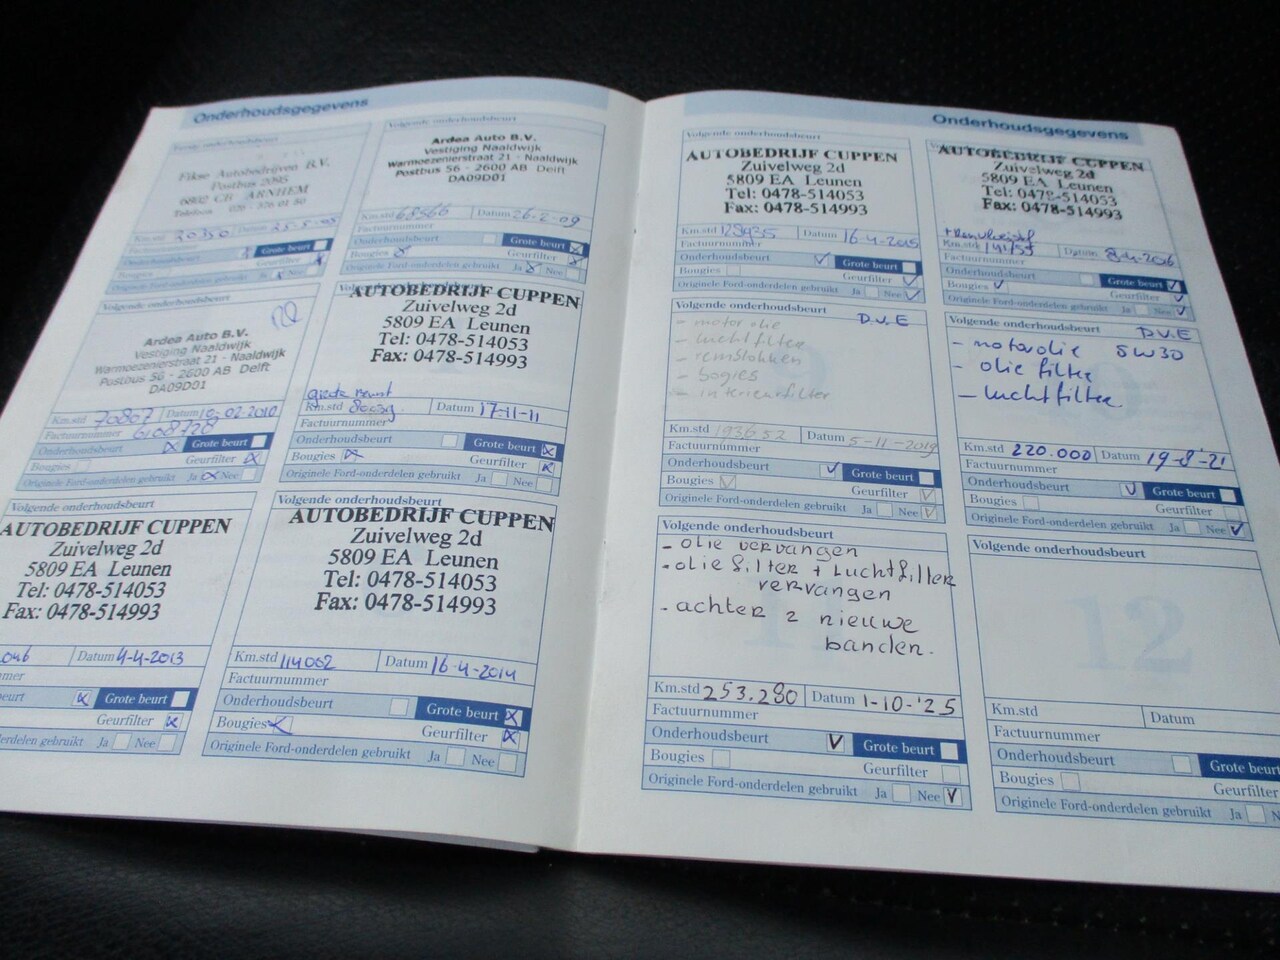 Onderhoudsgegevens
Eikse Autobedrijven B.V.
Postbus 2095
6802 CB ARNHEM
Telefoon
Km.std 20350 Datum
Grote beurt
Geurfilter
Nee
Volgende onderhoudsbeurt
Ardea Auto B.V.
Vestiging Naaldwijk
Warmoezenierstraat 21 - Naaldwijk
Postbus 56 - 2600 AB Delft
DA09D01
Km.std 68566 Datum 26-2-09
Factuurnummer
Onderhoudsbeurt Grote beurt
Bougies Geurfilter
Originele Ford-onderdelen gebruikt Ja Nee
Volgende onderhoudsbeurt
Ardea Auto B.V.
Vestiging Naaldwijk
Warmoezenierstraat 21 - Naaldwijk
Postbus 56 - 2600 AB Delft
DA09D01
Km.std 70807 Datum 10-02-2010
Factuurnummer 6108728
Onderhoudsbeurt Grote beurt
Bougies Geurfilter
Originele Ford-onderdelen gebruikt Ja Nee
Volgende onderhoudsbeurt
AUTOBEDRIJF CUPPEN
Zuivelweg 2d
5809 EA Leunen
Tel: 0478-514053
Fax: 0478-514993
grote beurt
Km.std Datum 17-11-11
Factuurnummer
Onderhoudsbeurt Grote beurt
Bougies Geurfilter
Originele Ford-onderdelen gebruikt Ja Nee
Volgende onderhoudsbeurt
AUTOBEDRIJF CUPPEN
Zuivelweg 2d
5809 EA Leunen
Tel: 0478-514053
Fax: 0478-514993
Datum 4-4-2013
mer
eurt Grote beurt
Geurfilter
derdelen gebruikt Ja Nee
Volgende onderhoudsbeurt
AUTOBEDRIJF CUPPEN
Zuivelweg 2d
5809 EA Leunen
Tel: 0478-514053
Fax: 0478-514993
Km.std 114002 Datum 16-4-2014
Factuurnummer
Onderhoudsbeurt Grote beurt
Bougies Geurfilter
Originele Ford-onderdelen gebruikt Ja Nee
Onderhoudsgegevens
Volgende onderhoudsbeurt
AUTOBEDRIJF CUPPEN
Zuivelweg 2d
5809 EA Leunen
Tel: 0478-514053
Fax: 0478-514993
Km.std 128435 Datum 16-4-2015
Factuurnummer
Onderhoudsbeurt Grote beurt
Bougies Geurfilter
Originele Ford-onderdelen gebruikt Ja Nee
AUTOBEDRIJF CUPPEN
Zuivelweg 2d
5809 EA Leunen
Tel: 0478-514053
Fax: 0478-514993
Km.std Datum 8-4-2016
Factuurnummer
Onderhoudsbeurt Grote beurt
Bougies Geurfilter
Originele Ford-onderdelen gebruikt Ja Nee
Volgende onderhoudsbeurt
D.V.E
- motorolie
- luchtfilter
- remblokken
- bogies
- interieurfilter
Km.std 193652 Datum 5-11-2019
Factuurnummer
Onderhoudsbeurt Grote beurt
Bougies Geurfilter
Originele Ford-onderdelen gebruikt Ja Nee
Volgende onderhoudsbeurt
D.V.E
- motorolie 5W30
- olie filter
- luchtfilter
Km.std 220.000 Datum 19-8-'21
Factuurnummer
Onderhoudsbeurt Grote beurt
Bougies Geurfilter
Originele Ford-onderdelen gebruikt Ja Nee
Volgende onderhoudsbeurt
- olie vervangen
- olie filter + luchtfilter
vervangen
- achter 2 nieuwe
banden.
Km.std 253.280 Datum 1-10-'25
Factuurnummer
Onderhoudsbeurt Grote beurt
Bougies Geurfilter
Originele Ford-onderdelen gebruikt Ja Nee
Volgende onderhoudsbeurt
12
Km.std Datum
Factuurnummer
Onderhoudsbeurt Grote beurt
Bougies Geurfilter
Originele Ford-onderdelen gebruikt Ja N